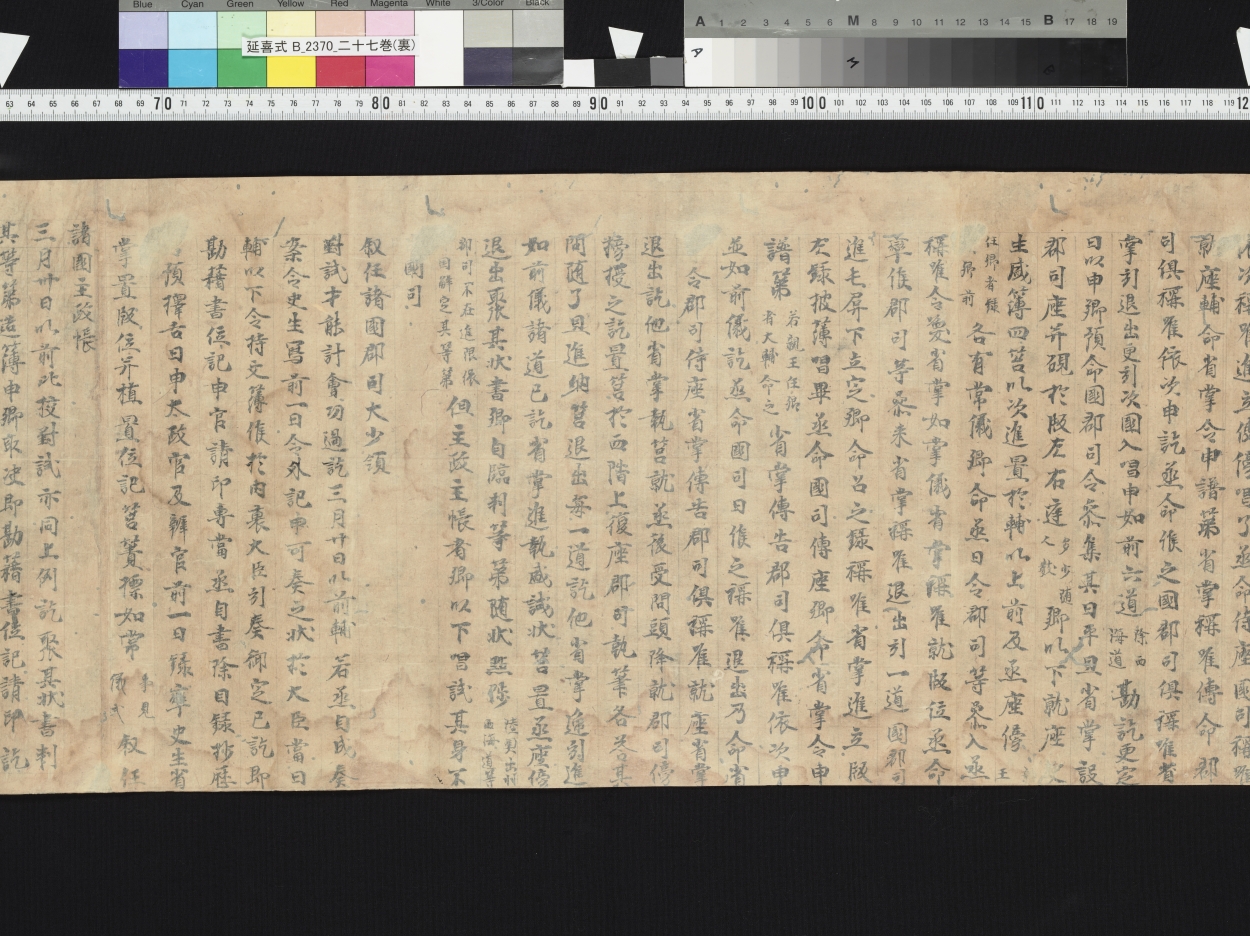 Blue Cyan Green Yellow Red Magenta White 3/Color Black
延喜式 B_2370_二十七巻(裏)
A 1 2 3 4 5 6 M 8 9 10 11 12 13 14 15 B 17 18 19
63 64 65 66 67 68 69 70 71 72 73 74 75 76 77 78 79 80 81 82 83 84 85 86 87 88 89 90 91 92 93 94 95 96 97 98 99 100 101 102 103 104 105 106 107 108 109 110 111 112 113 114 115 116 117 118 119 12
座輔命省掌令申譜第省掌稱唯傳命郡
司俱稱唯依次申訖丞命俟之國郡司俱稱唯省
掌引退出更引次國入唱申如前六道除西海道勘訖更定
日以申卿預命國郡司令參集其日平旦省掌設
郡司座并硯於版左右遶多少随人数卿以下就座
主威簿四筥以次進置於輔以上前及丞座傍王
任卿者
卿前各有常儀卿命丞曰令郡司等參入丞
稱唯令喚省掌如掌儀省掌稱唯就版位丞命
率俟郡司等參来省掌稱唯退出引一道國郡司
進毛屏下立定卿命召之錄稱唯省掌進立版
左錄披簿唱畢丞命國司傳座卿命省掌令申
譜第若親王任卿者大輔命之省掌傳告郡司俱稱唯依次申
並如前儀訖丞命國司曰俟之稱唯退出乃命省
令郡司侍座省掌傳告郡司俱稱唯就座省掌
退出訖他省掌執筥就丞後受問頭降就郡司傍
搒授之訖置筥於西階上復座郡司執筆各答其
問随了具進納筥退出每一道訖他省掌遞引進
如前儀諸道已訖省掌進執威誠状筥置丞座傍
退出聚其状書卿自臨判等第随状黜陟
郡司不在進限依國解定其等第但主政主帳者卿以下唱試其身不
國司
叙任諸國郡司大少領
對試才能計會功過訖三月廿日以前輔若丞自成奏
案令史生寫前一日令外記申可奏之状於大臣當日
輔以下令持文簿俟於内裏大臣引奏御定已訖即
勘籍書位記申官請印專當丞自書除目錄抄歷
預擇吉日申太政官及辨官前一日錄率史生省
掌置版位并植置位記筥簀標如常事見儀式叙任
諸國主政帳
三月卅日以前此挍對試亦同上例訖聚其状書判
其等第造簿申卿取决即勘籍書位記請印訖